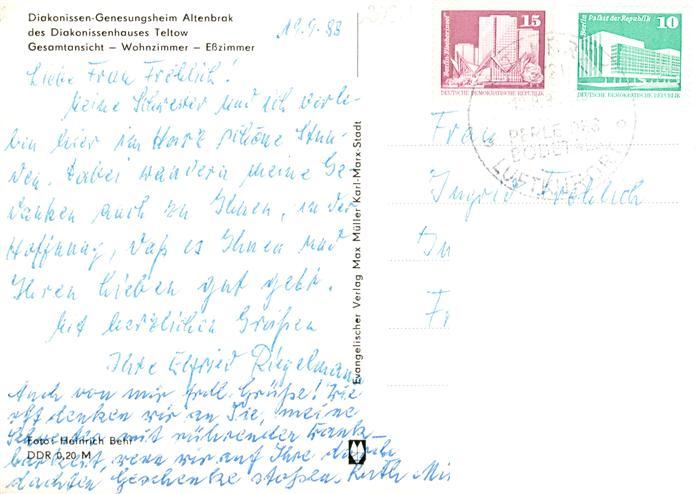 Diakonissen-Genesungsheim Altenbrak
des Diakonissenhauses Teltow
Gesamtansicht – Wohnzimmer – Eßzimmer
19.9.83
Liebe Frau Fröhlich!
Meine Schwester und ich verle-
ben hier im Harz schöne Stun-
den. Dabei wandern meine Ge-
danken auch zu Ihnen, in der
Hoffnung, daß es Ihnen und
Ihren Lieben gut geht.
Mit herzlichen Grüßen
Ihre Elfried Riegelmann
Auch von mir frdl. Grüße! Wie
oft denken wir an Sie, meine
Schwester mit rührender Dank-
barkeit, wenn wir auf Ihre durch-
dachten Geschenke stoßen. Ruth
Foto: Heinrich Behr
DDR 0,20 M
Evangelischer Verlag Max Müller Karl-Marx-Stadt
Berlin, Fischerinsel
15
DEUTSCHE DEMOKRATISCHE REPUBLIK
Berlin, Palast der Republik
10
DEUTSCHE DEMOKRATISCHE REPUBLIK
PERLE DES
BODETALES
LUFTKURORT
Frau
Ingrid Fröhlich
In
Fr